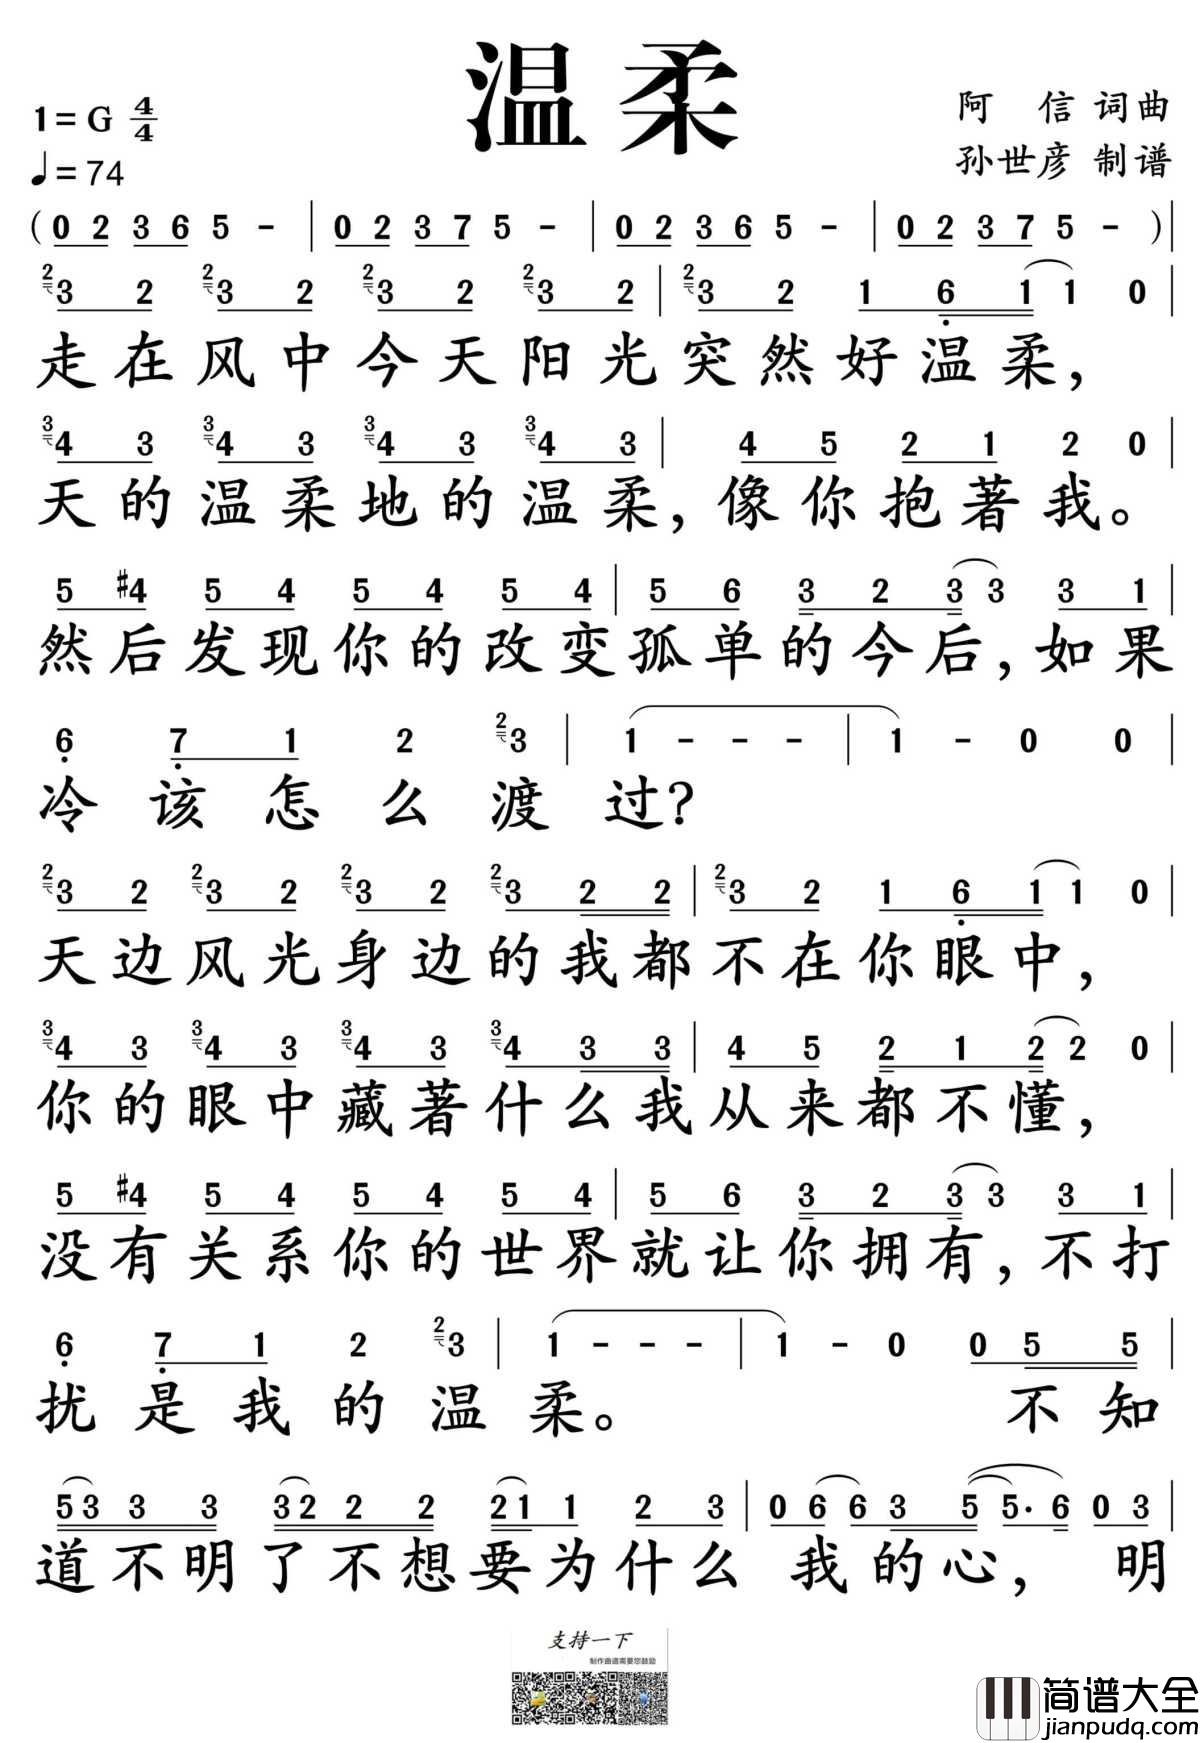 温柔
1=G 4/4
阿 信 词曲
♩=74
孙世彦 制谱
(0 2 3 6 5 - | 0 2 3 7 5 - | 0 2 3 6 5 - | 0 2 3 7 5 - )|
²3 2 ²3 2 ²3 2 ²3 2 | ²3 2 1 6̣ 1 1 0 |
走在风中今天阳光突然好温柔，
³4 3 ³4 3 ³4 3 ³4 3 | 4 5 2 1 2 0 |
天的温柔地的温柔，像你抱著我。
5 #4 5 4 5 4 5 4 | 5 6 3 2 3 3 3 1 |
然后发现你的改变孤单的今后，如果
6̣ 7̣ 1 2 ²3 | 1 - - - | 1 - 0 0 |
冷该怎么渡过？
²3 2 ²3 2 ²3 2 ²3 2 2 | ²3 2 1 6̣ 1 1 0 |
天边风光身边的我都不在你眼中，
³4 3 ³4 3 ³4 3 ³4 3 3 | 4 5 2 1 2 2 0 |
你的眼中藏著什么我从来都不懂，
5 #4 5 4 5 4 5 4 | 5 6 3 2 3 3 3 1 |
没有关系你的世界就让你拥有，不打
6̣ 7̣ 1 2 ²3 | 1 - - - | 1 - 0 0 5 5 |
扰是我的温柔。 不知
5 3 3 3 3 2 2 2 2 1 1 2 3 | 0 6 6 3 5 5· 6 0 3 |
道不明了不想要为什么 我的心，明
支持一下
制作曲谱需要您鼓励
简谱大全
jianpudq.com